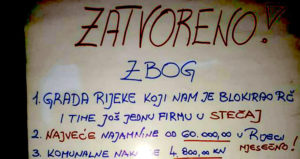 ZATVORENO!
ZBOG
1. GRADA RIJEKE KOJI NAM JE BLOKIRAO RČ
I TIME JOŠ JEDNU FIRMU U STEČAJ
2. NAJVEĆE NAJAMNINE OD 60.000,00 U RIJECI
MJESEČNO!
3. KOMUNALNE 4.800,00 KN